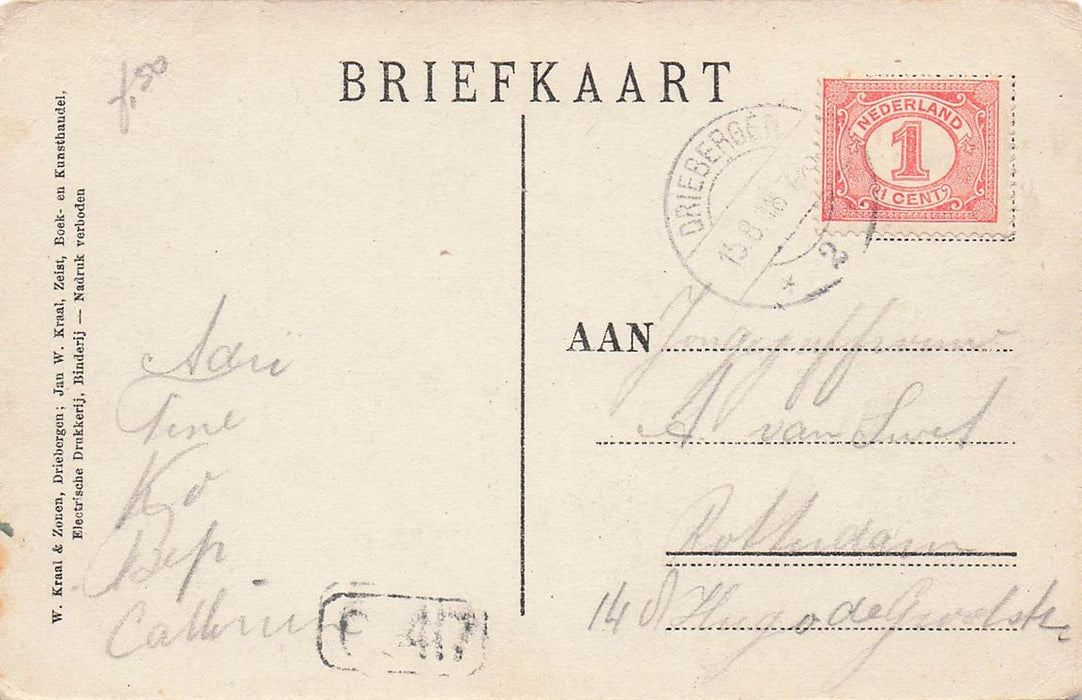 f'50
BRIEFKAART
NEDERLAND
1
1 CENT
DRIEBERGEN
2
W. Kraal & Zonen, Driebergen; Jan W. Kraal, Zeist, Boek- en Kunsthandel,
Electrische Drukkerij, Binderij — Nadruk verboden
Adri
Tine
Ko
Bep
Cathrine
C 417
AAN Jongejuffrouw
A. van
Rotterdam
Hugo de Grootstr.